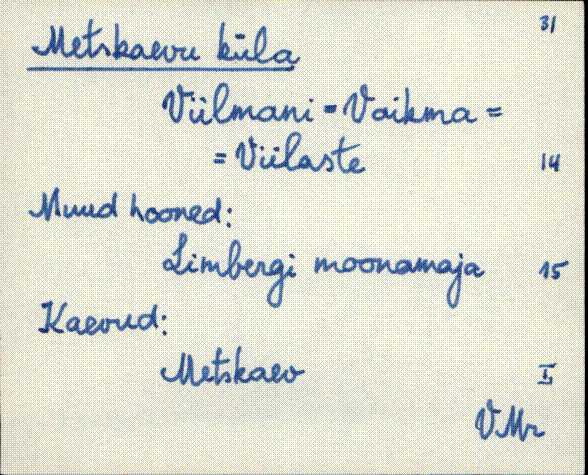 31
Metskaevu küla
Viilmani = Vaikma =
= Viilaste 14
Muud hooned:
Limbergi moonamaja 15
Kaevud:
Metskaev I
VMr